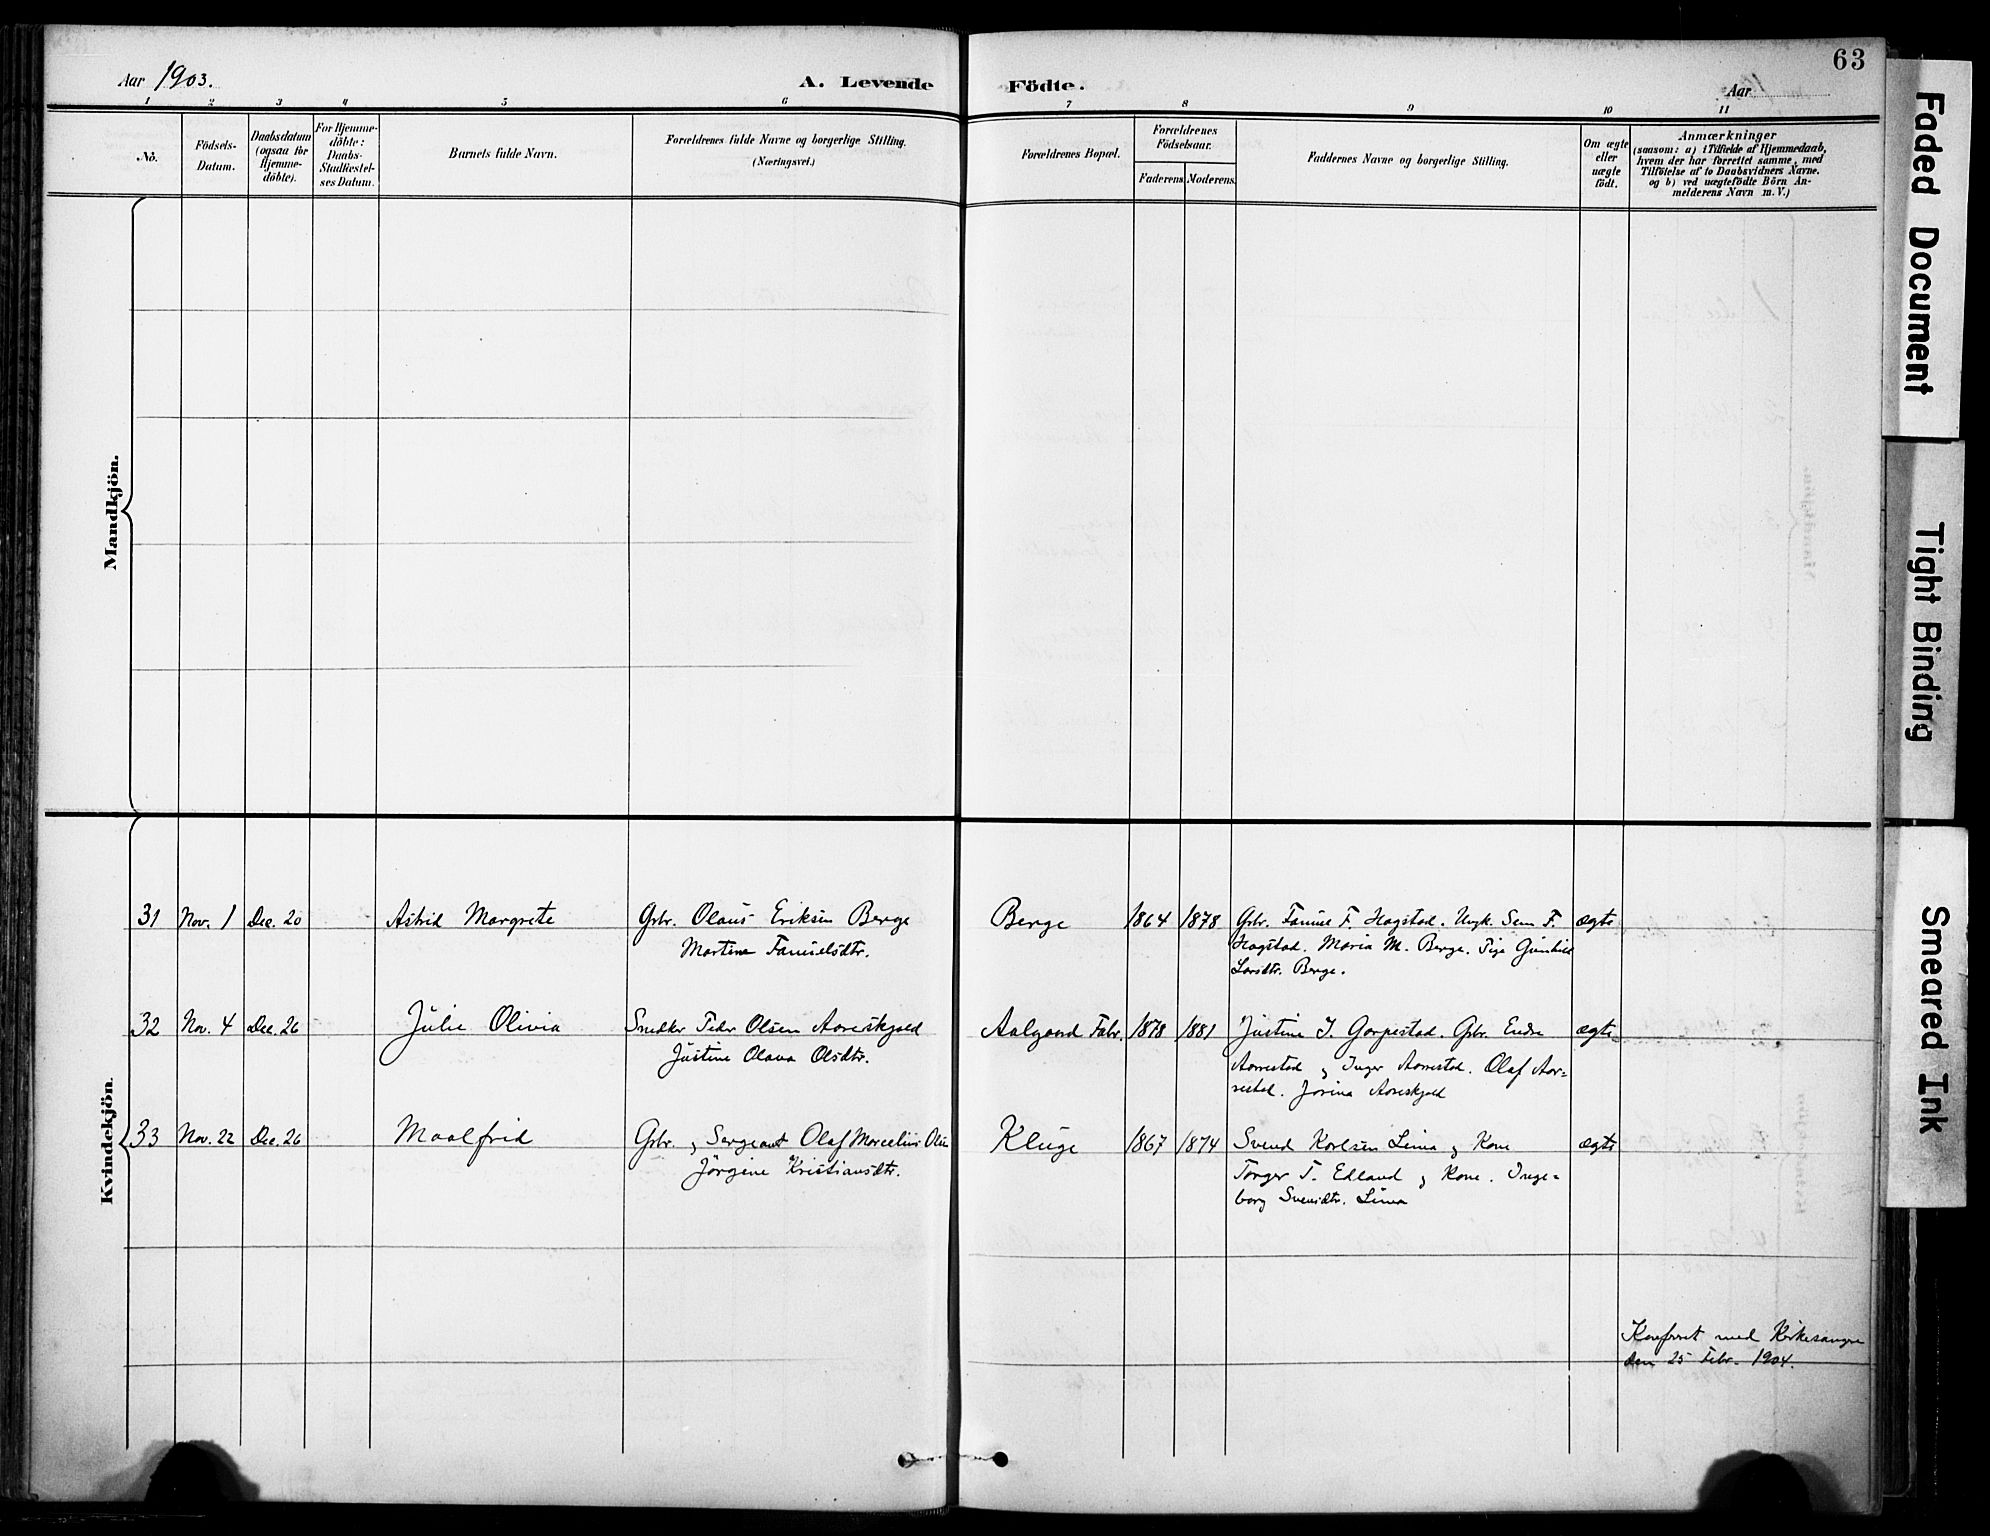 63
Aar 1903.
A. Levende Födte.
Aar
1 2 3 4 5 6 7 8 9 10 11
No.
Födsels-
Datum.
Daabsdatum
(ogsaa for
Hjemme-
döbte).
For Hjemme-
döbte:
Daabs-
Stadfæstel-
ses Datum.
Barnets fulde Navn.
Forældrenes fulde Navne og borgerlige Stilling.
(Næringsvei.)
Forældrenes Bopæl.
Forældrenes
Födselsaar.
Faderens. Moderens.
Faddernes Navne og borgerlige Stilling.
Om ægte
eller
uægte
födt.
Anmærkninger
(saasom: a) i Tilfælde af Hjemmedaab,
hvem der har forrettet samme, med
Tilföielse af to Daabsvidners Navne.
og b) ved uægtefödte Börn An-
melderens Navn m. V.)
Mandkjön.
Kvindekjön.
31 Nov. 1 Dec. 20 Astrid Margrete Grbr. Olaus Eriksen Berge Berge 1864 1878 Grbr. Tønnes F. Hagstad. Ungk. Sem F. ægte
Martine Tønnesdtr. Hagstad. Maria M. Berge. Pige Gunhild
Larsdtr. Berge.
32 Nov. 4 Dec. 26 Julie Olivia Snedker Peder Olsen Aareskjold Aalgaard Fabr. 1878 1881 Justine J. Gorpestad. Grbr. Endre ægte
Justine Olava Olsdtr. Aarrestad & Inger Aarrestad. Olaf Aar=
restad. Jorina Aareskjold
33 Nov. 22 Dec. 26 Maalfrid Grbr. & Sergeant Olaf Marcelius Olsen Kluge 1867 1874 Svend Karlsen Lima & Kone ægte
Jörgine Kristiansdtr. Torger T. Edland & Kone. Inge=
borg Svensdtr. Lima
Konfereret med Kirkesangeren
den 25 Febr. 1904.
Faded Document
Tight Binding
Smeared Ink